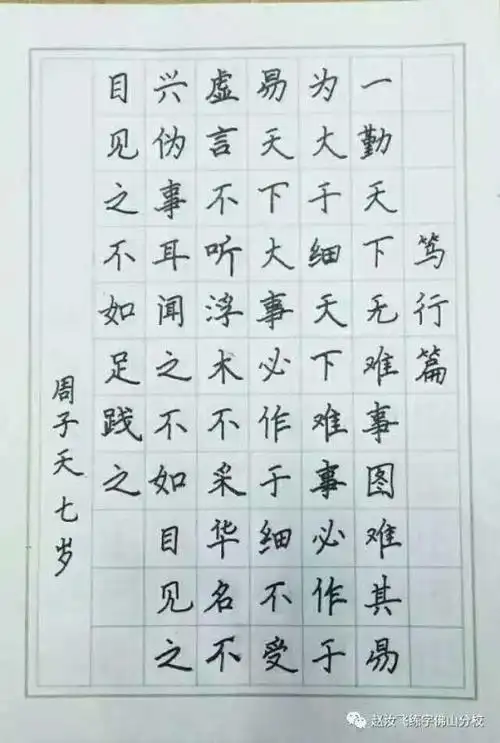 笃行篇
一勤天下无难事图难其易
为大于细天下难事必作于
易天下大事必作于细不受
虚言不听浮术不采华名不
兴伪事耳闻之不如目见之
目见之不如足践之
周子天七岁
赵汝飞练字佛山分校